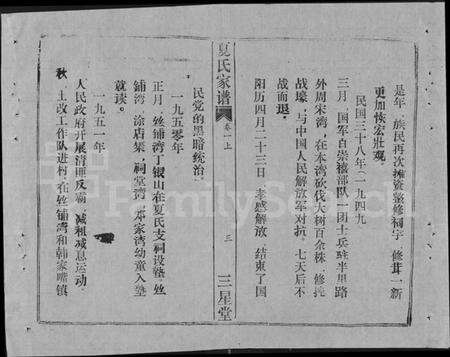 是年 族民再次摊资整修祠宇 修茸一新
更加恢宏壮观。
民国三十八年(一九四九
三月 国军百崇禧部队一团士兵驻半里路
外周宋湾,在本湾砍伐大树百余株 修挖
战壕,与中国人民解放军对抗。七天后不
战而退。
阳历四月二十三日 孝感解放 结束了国
夏氏家谱
卷一上
三
三星堂
民党的黑暗统治。
一九五〇年
正月,丝铺湾丁银山在夏氏支祠设塾 丝
铺湾、涂店集、祠堂湾、邓家湾幼童入塾
就读。
一九五一年
人民政府开展清匪反霸 减租减息运动
秋 土改工作队进村 在丝铺湾和韩家嘴镇
FamilySearch